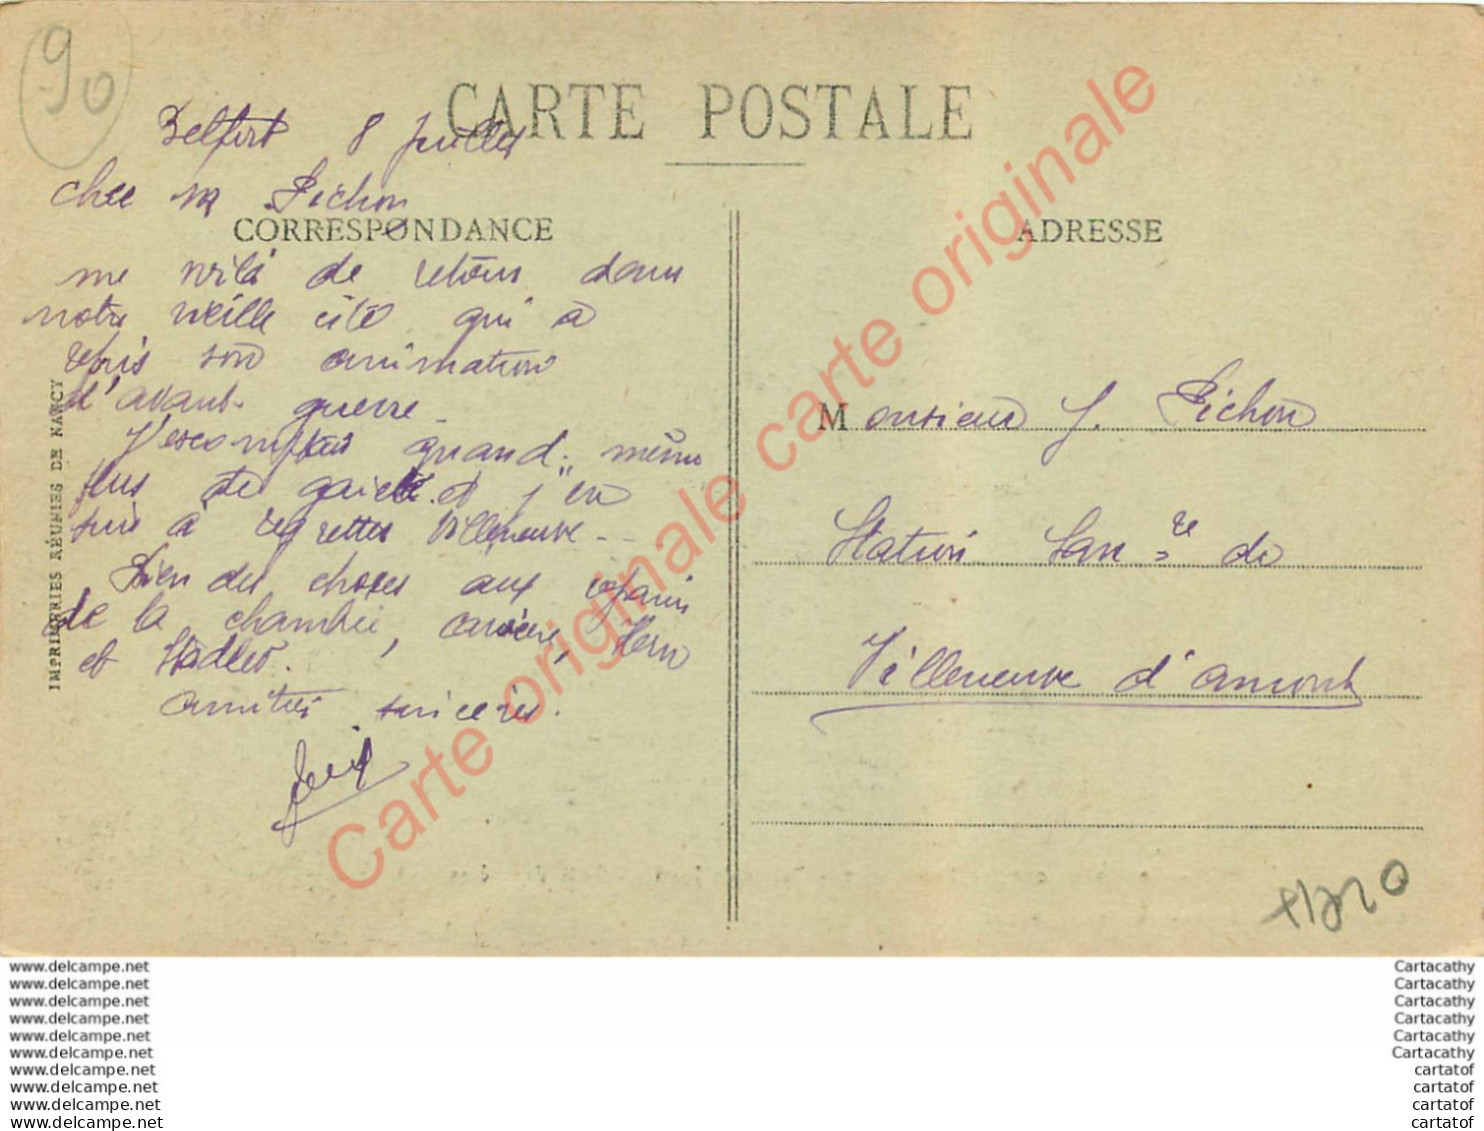 90
CARTE POSTALE
Belfort 8 Juillet
Cher M Pichon
CORRESPONDANCE
me voilà de retour dans
notre vieille cité qui a
repris son animation
d'avant-guerre.
J'escomptais quand même
plus de gaieté et j'en
suis à regretter Villeneuve...
Bien des choses aux copains
de la chambre, Carrière, Hern
et Stadler.
amitiés sincères.
IMPRIMERIES RÉUNIES DE NANCY
ADRESSE
Monsieur J. Pichon
Station San re de
Villeneuve d'amont
Carte originale carte originale
www.delcampe.net
www.delcampe.net
www.delcampe.net
www.delcampe.net
www.delcampe.net
www.delcampe.net
www.delcampe.net
www.delcampe.net
www.delcampe.net
www.delcampe.net
Cartacathy
Cartacathy
Cartacathy
Cartacathy
Cartacathy
Cartacathy
cartatof
cartatof
cartatof
cartatof